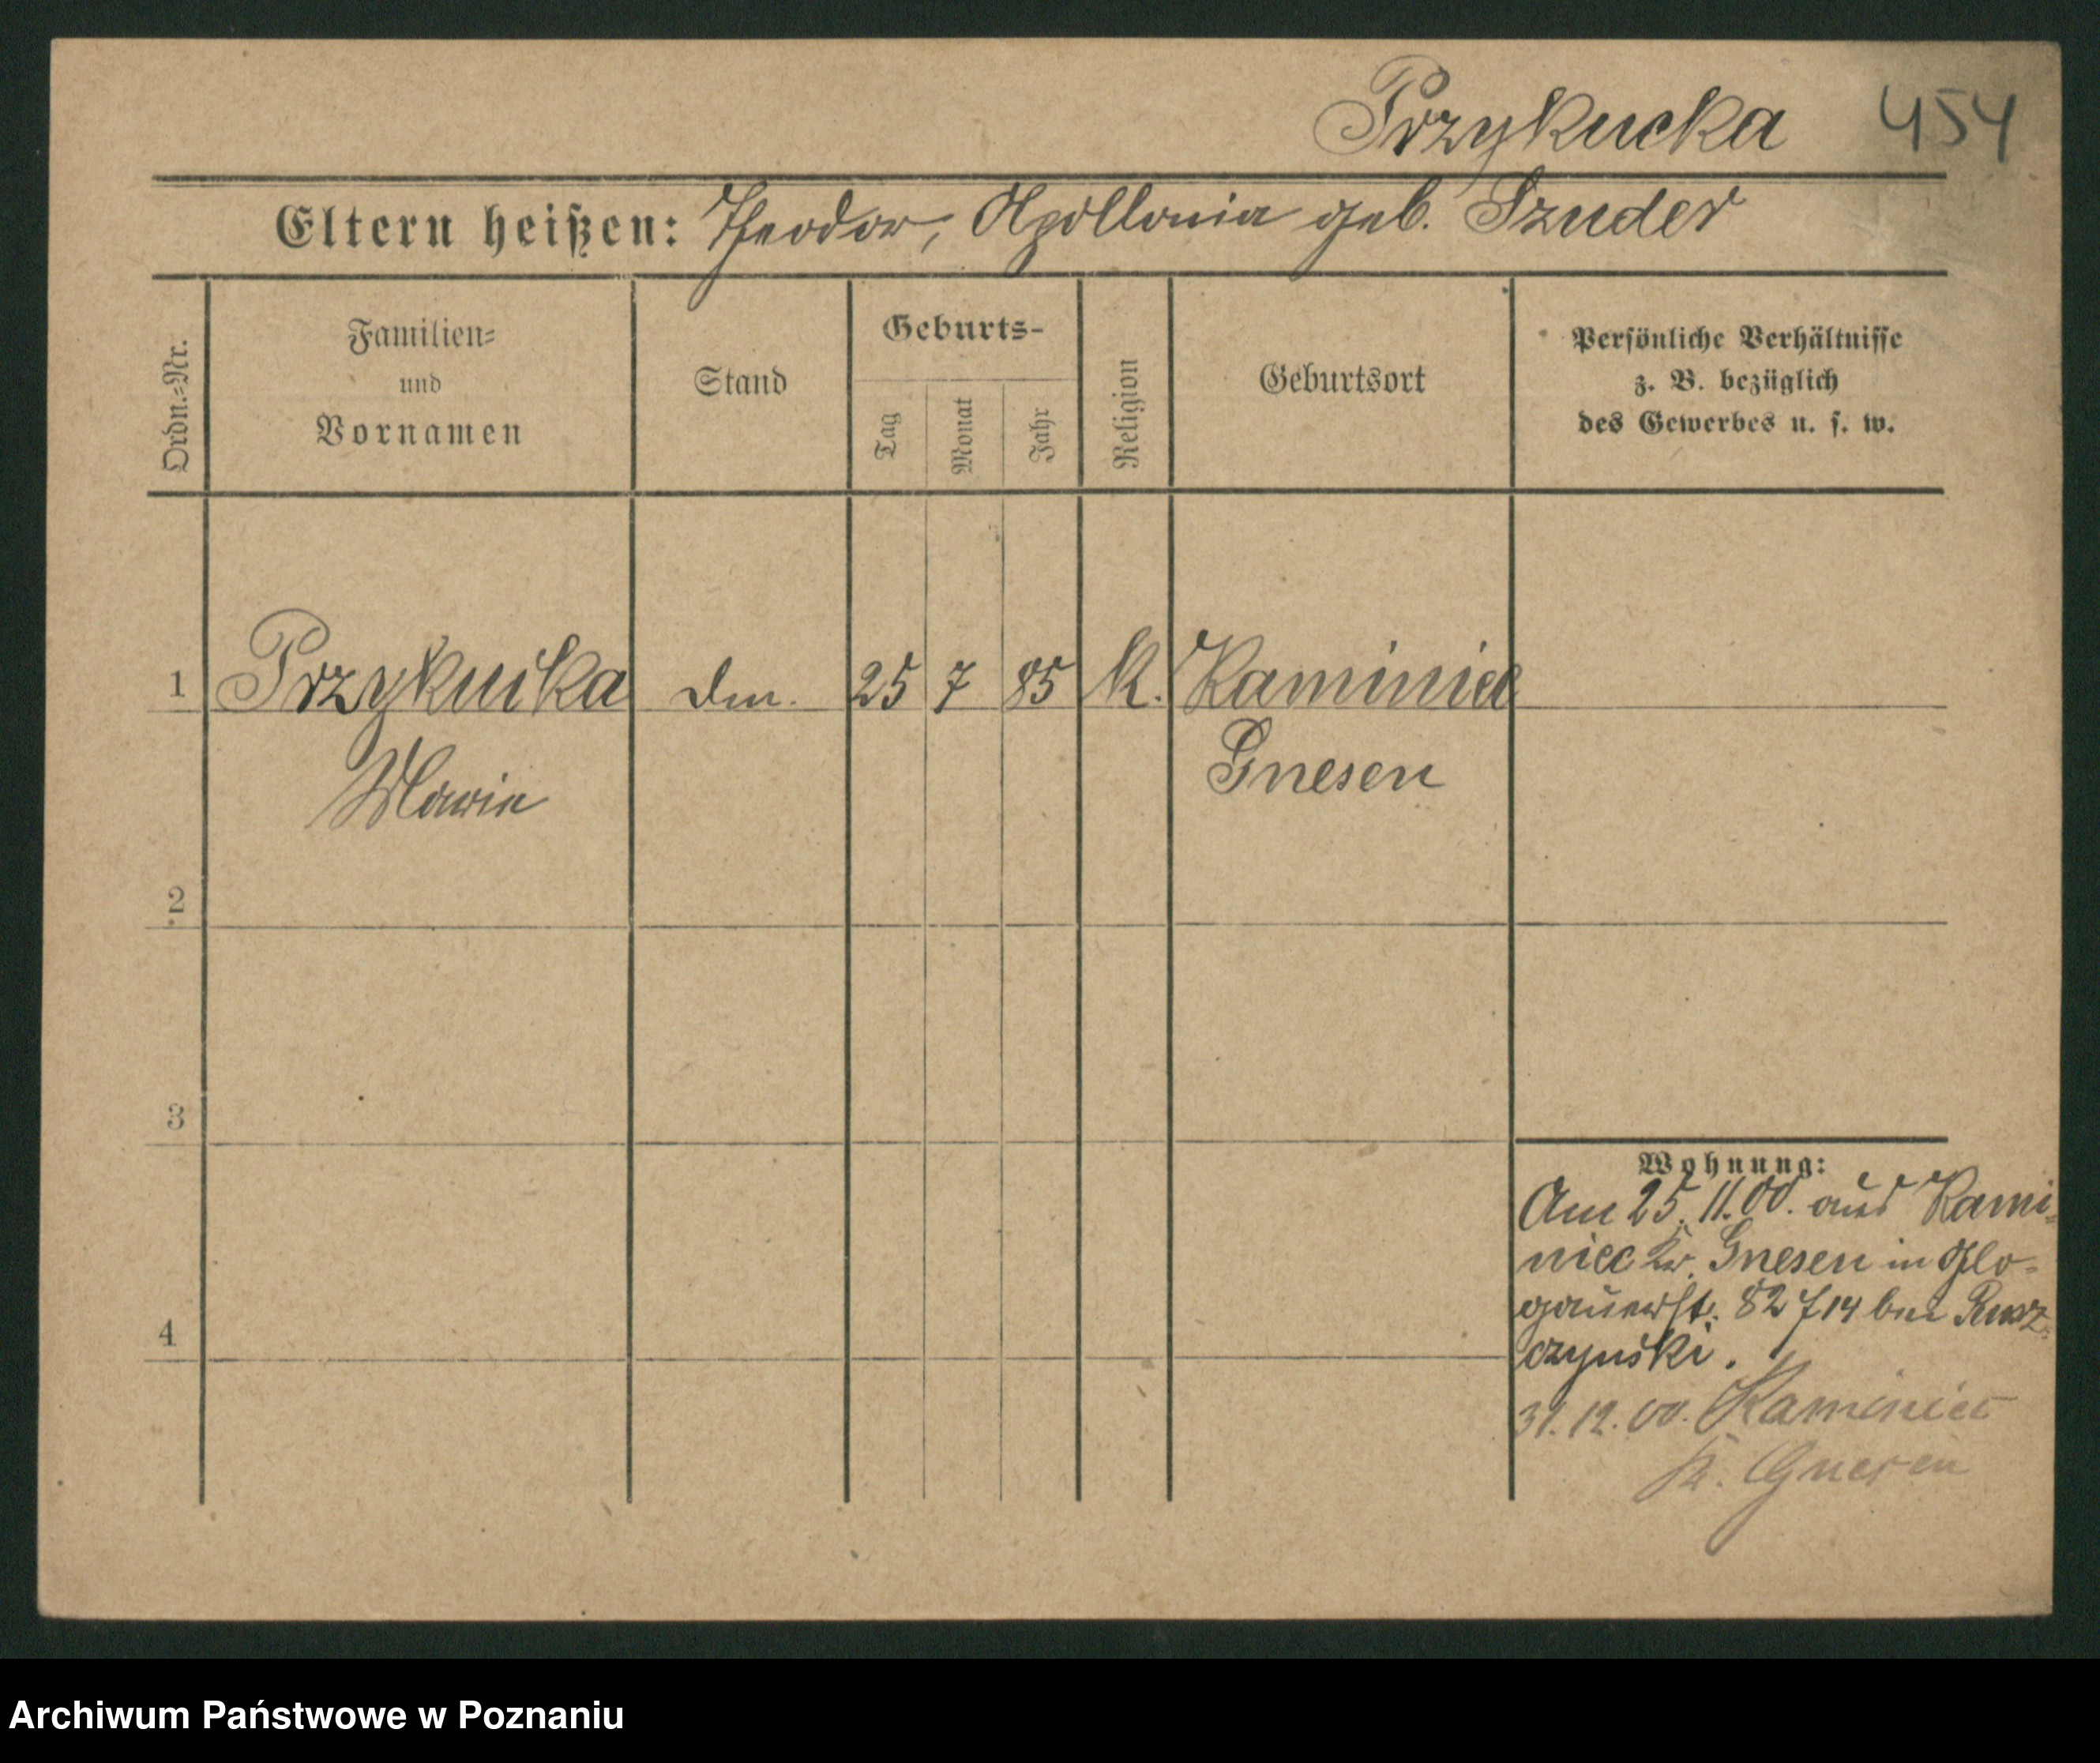 Przykucka 454
Eltern heißen: Theodor, Apollonia geb. Szuder
Ordn.=Nr.
Familien=
und
Vornamen
Stand
Geburts-
Tag
Monat
Jahr
Religion
Geburtsort
Persönliche Verhältnisse
z. B. bezüglich
des Gewerbes u. s. w.
1 Przykucka 25 7 85 K. Kaminiec
Marie Gnesen
2
3
Wohnung:
Am 25. 11. 00. aus Kami-
niec Kr. Gnesen in Glo-
gauerst. 82 714 bei
4
czynski.
31. 12. 00. Kaminiec
Kr. Gnesen
Archiwum Państwowe w Poznaniu